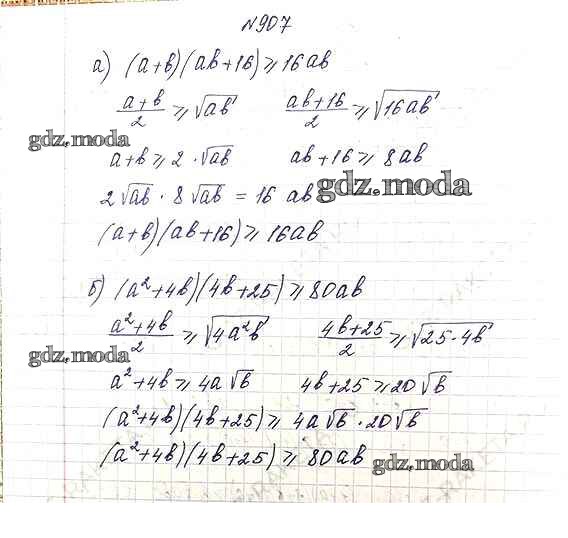 №907
а) (a+b)(ab+16) ≥ 16ab
(a+b)/2 ≥ √ab   (ab+16)/2 ≥ √16ab
gdz.moda
a+b ≥ 2·√ab   ab+16 ≥ 8ab
2√ab · 8√ab = 16 ab
gdz.moda
(a+b)(ab+16) ≥ 16ab
б) (a²+4b)(4b+25) ≥ 80ab
(a²+4b)/2 ≥ √4a²b   (4b+25)/2 ≥ √25·4b
gdz.moda
a²+4b ≥ 4a√b   4b+25 ≥ 20√b
(a²+4b)(4b+25) ≥ 4a√b · 20√b
(a²+4b)(4b+25) ≥ 80ab
gdz.moda